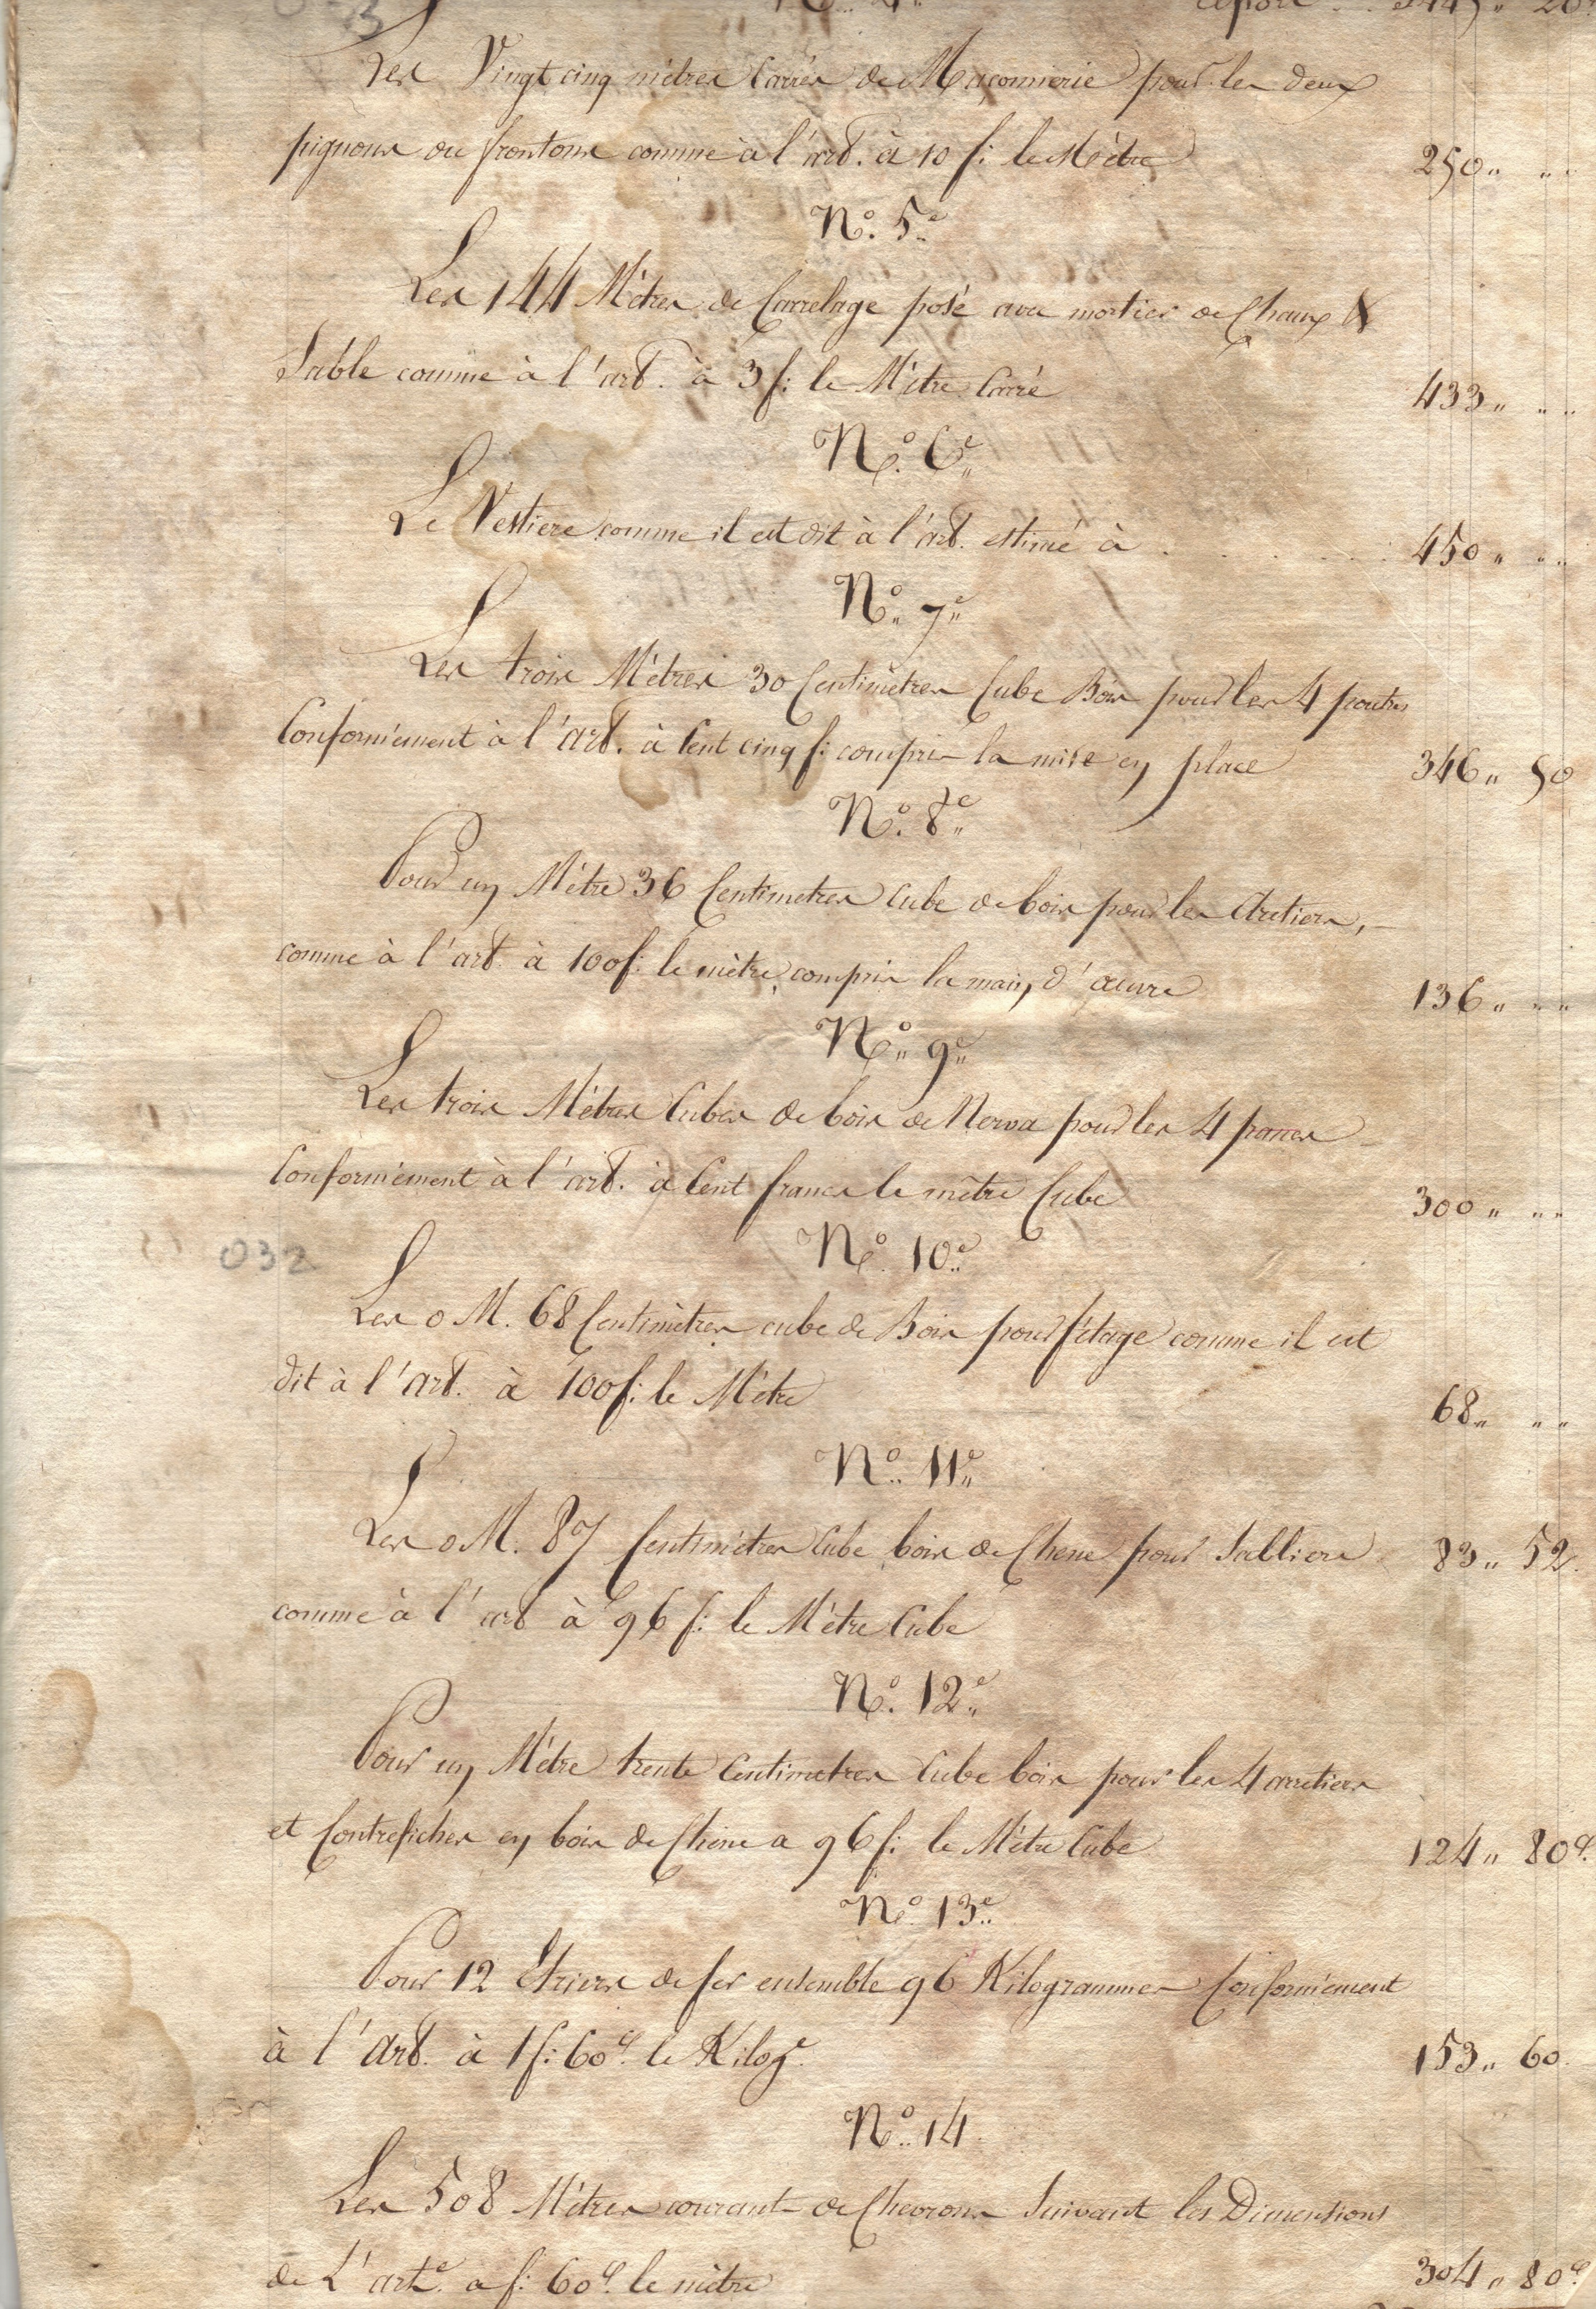 Les Vingt cinq mètres Carrés de Maçonnerie pour les deux
pignons ou frontons comme à l'art. à 10 f: le Mètre 250 〃 〃
N.º 5.e
Les 144 Mètres de Carrelage posé avec mortier de Chaux &
Sable comme à l'art. à 3 f: le Mètre Carré 433 〃 〃
N.º 6.e
Le Vestiere comme il est dit à l'art. estimé à . . . . . . 450 〃 〃
N.º 7.e
Les trois Mètres 30 Centimètres Cube Bois pour les 4 poutres
Conformément à l'art. à Cent cinq f: compris la mise en place 346 〃 50
N.º 8.e
Pour un Mètre 36 Centimetres Cube de bois pour les Aretiers,
comme à l'art. à 100 f: le mètre compris la main d'œuvre 136 〃 〃
N.º 9.e
Les trois Mètres Cubes de bois de Nerva pour les 4 pannes
Conformément à l'art. à Cent francs le mètre Cube 300 〃 〃
N.º 10.e
032
Les 0 M. 68 Centimètres cube de Bois pour fétage comme il est
dit à l'art. à 100 f: le Mètre 68 〃 〃
N.º 11.e
Les 0 M. 87 Centimètres Cube bois de Chene pour Sabliere 83 〃 52
comme à l'art à 96 f: le Mètre Cube
N.º 12.e
Pour un Mètre trente Centimetres Cube bois pour les 4 arretiers
et Contrefiches en bois de Chêne a 96 f: le Mètre Cube 124 〃 80 c.
N.º 13.e
Pour 12 Etriers de fer ensemble 96 Kilogrammes Conformément
à l'Art. à 1 f: 60 c. le Kilog.e 153 〃 60
N.º 14
Les 508 Mètres courant de Chevrons Suivant les Dimensions
de L'art.e a f: 60 c. le mètre 304 〃 80 c.